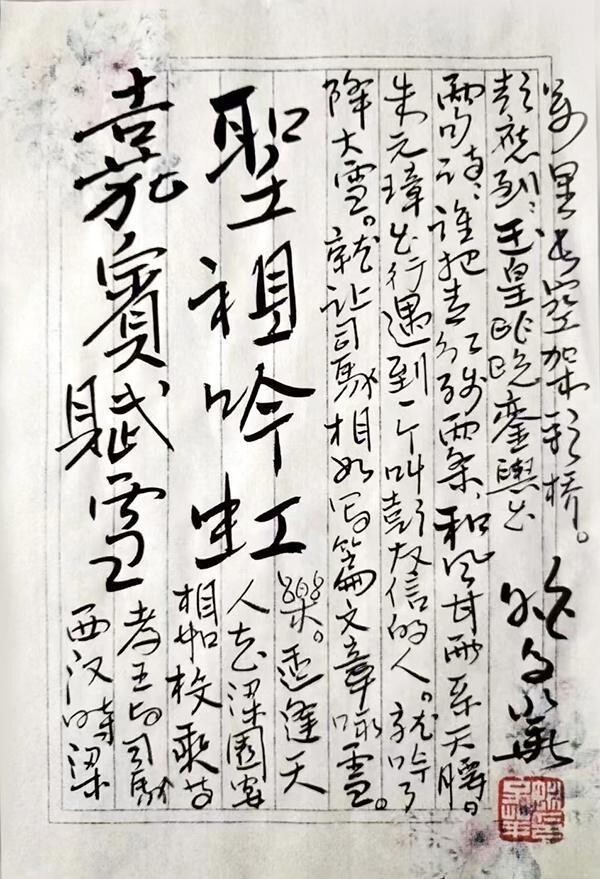 嘉賓賦雪
聖祖吟虹
西汉時梁
孝王与司馬
相如枚乘等
人在梁園宴
樂。适逢天
降大雪。就让司馬相如写篇文章咏雪。
朱元璋出行遇到一个叫彭友信的人。就吟了
两句诗：谁把青红线两条，和风甘雨系天腰。
彭應到：玉皇昨晚銮輿出
万里长空架彩桥。